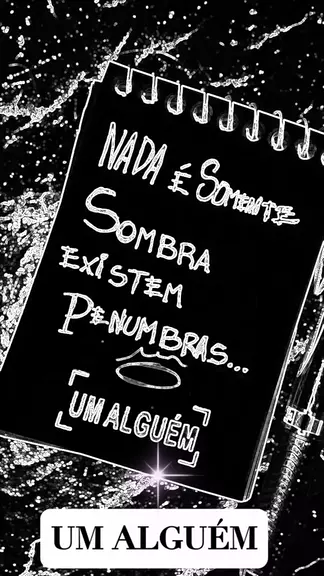 NADA É SOMENTE
SOMBRA
EXISTEM
PENUMBRAS...
UM ALGUÉM
UM ALGUÉM